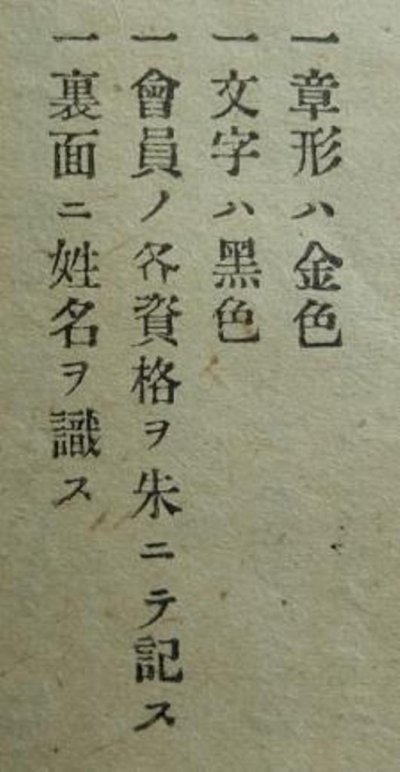 一章形ハ金色
一文字ハ黑色
一會員ノ各資格ヲ朱ニテ記ス
一裏面ニ姓名ヲ識ス